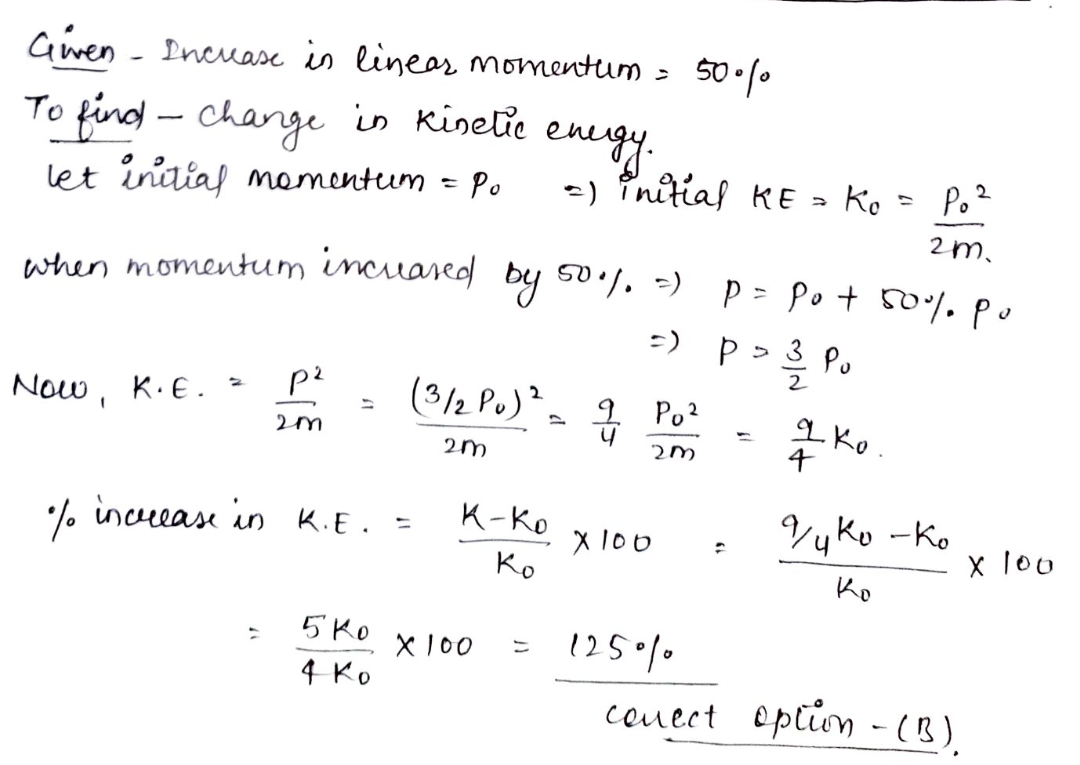 Given - Increase in linear momentum = 50%
To find - change in kinetic energy.
let initial momentum = P₀ => initial KE = K₀ = P₀²/2m.
when momentum increased by 50% => P = P₀ + 50% P₀
=> P = 3/2 P₀
Now, K.E. = P²/2m = (3/2 P₀)²/2m = 9/4 P₀²/2m = 9/4 K₀.
% increase in K.E. = K-K₀/K₀ X 100 = 9/4 K₀ - K₀/K₀ X 100
= 5 K₀/4 K₀ X 100 = 125%
correct option - (B).